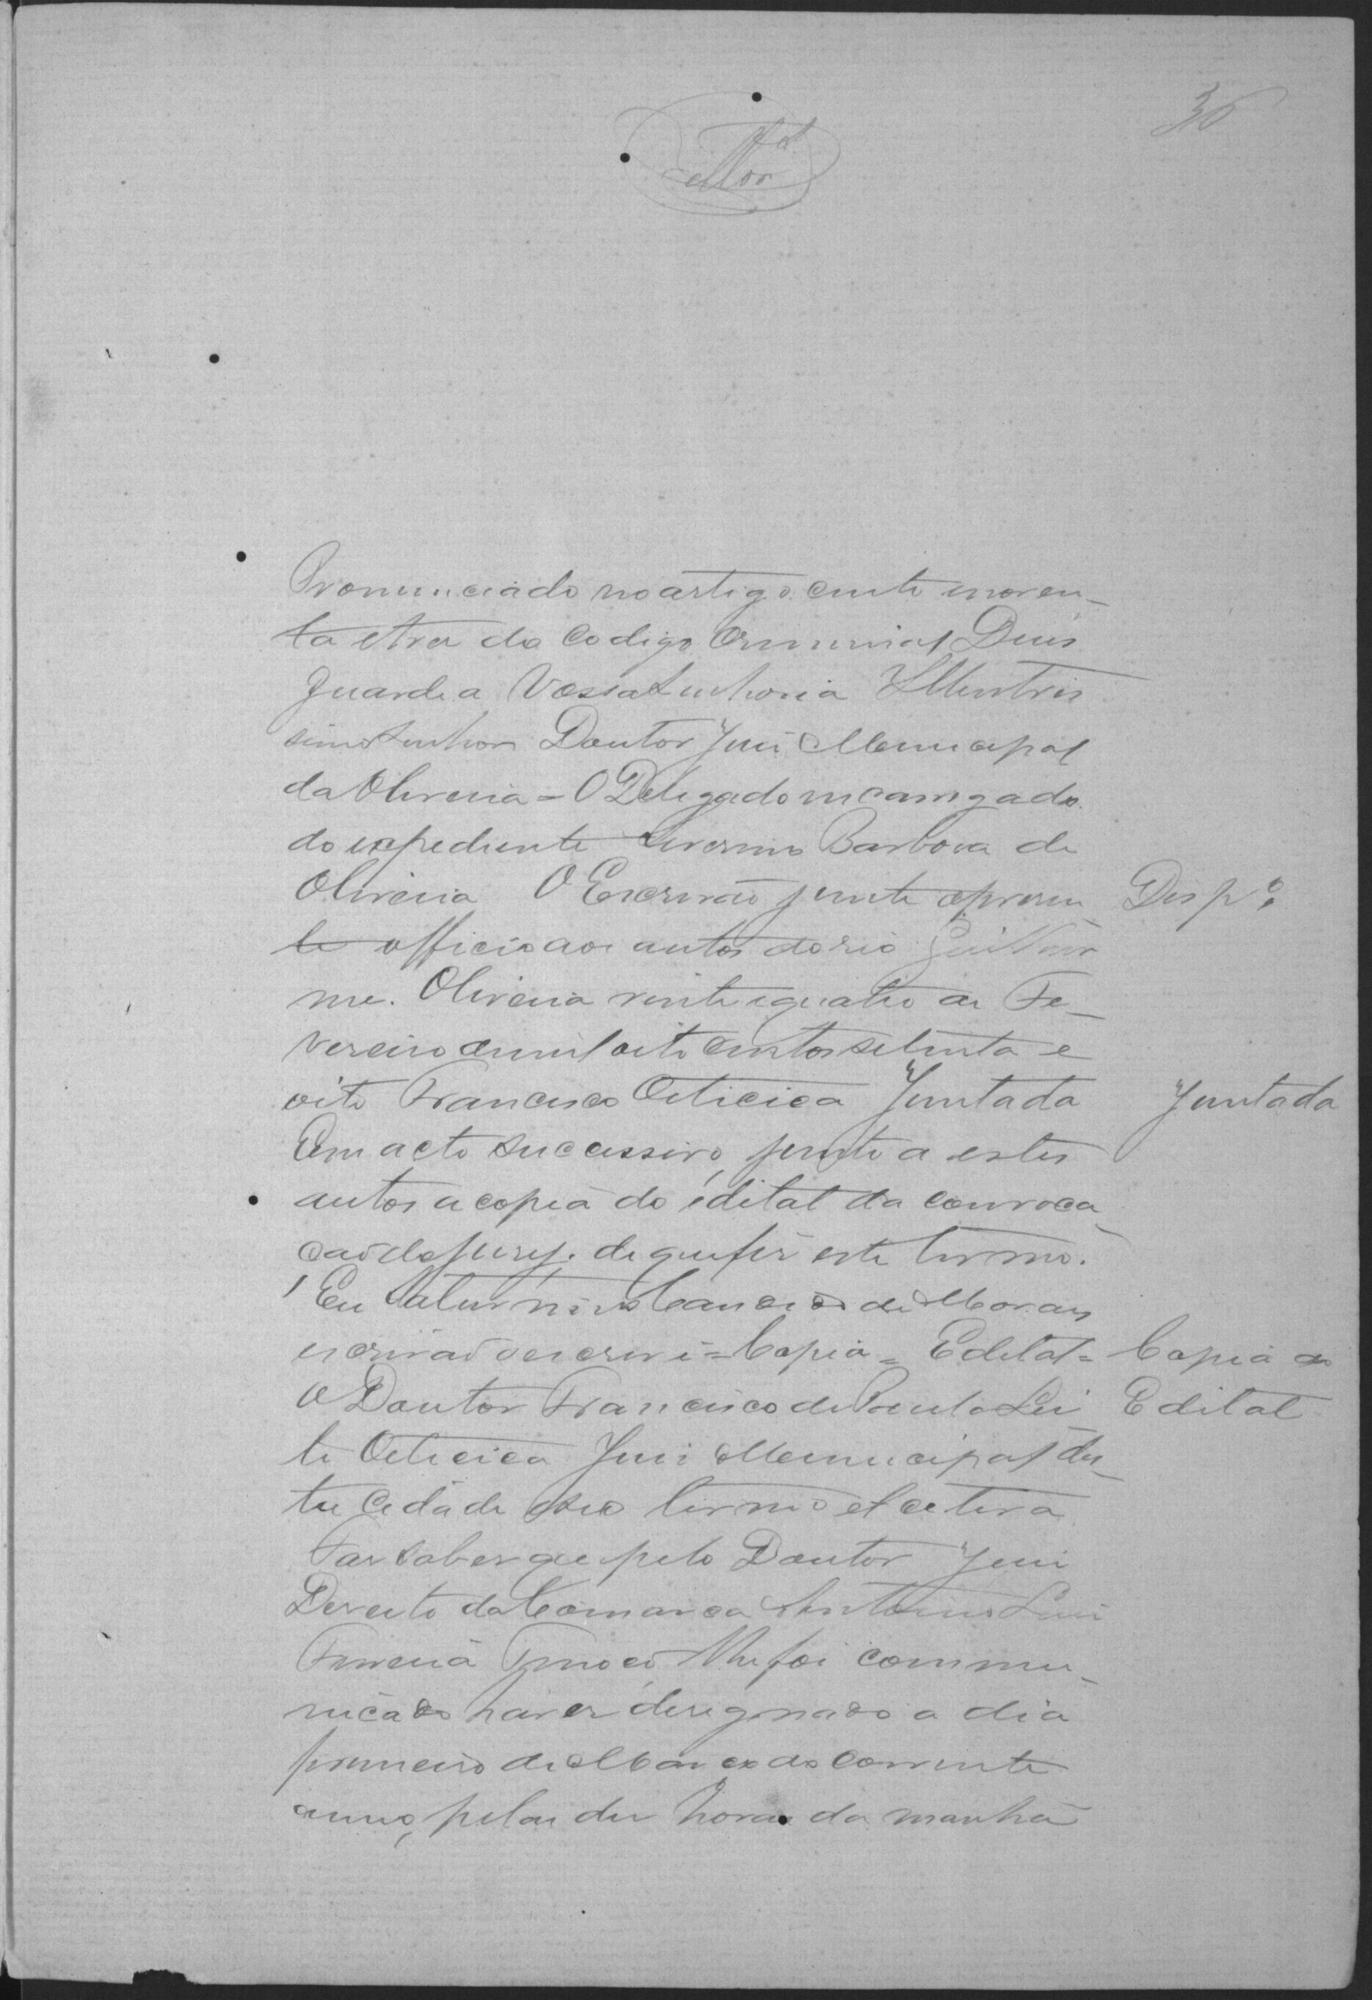 36
Pronunciado no artigo cento enoven-
ta etres do Codigo Criminal Deus
Guarde a Vossa Senhoria Illustris
simo Senhor Doutor Juiz Municipal
da Oliveira = O Delegado encarregado
do expediente Severino Barbosa de
Oliveira O Escrivão junte apresen Desp.º
te officio aos autos do reo Guilher
me. Oliveira vinte equatro de Fe-
vereiro de mil oito centos setenta e
oito Francisco Oiticica Juntada Juntada
Em acto successivo junto a estes
autos a copia do edital da convoca
cão do jury. de que fis este termo.
Eu Saturnino Cancio de Moraes
escrivão o escrevi = Copia = Edital = Copia do
O Doutor Francisco de Paula Lei Edital
te Oiticica Juiz Municipal des-
ta Cidade eseo termo etcetera
Faz saber que pelo Doutor Juiz
Dereito da Comarca Antonio Luis
Ferreira Tinoco lhe foi commu-
nicado haver designado o dia
primeiro de Março do corrente
anno, pelas dez horas da manhã